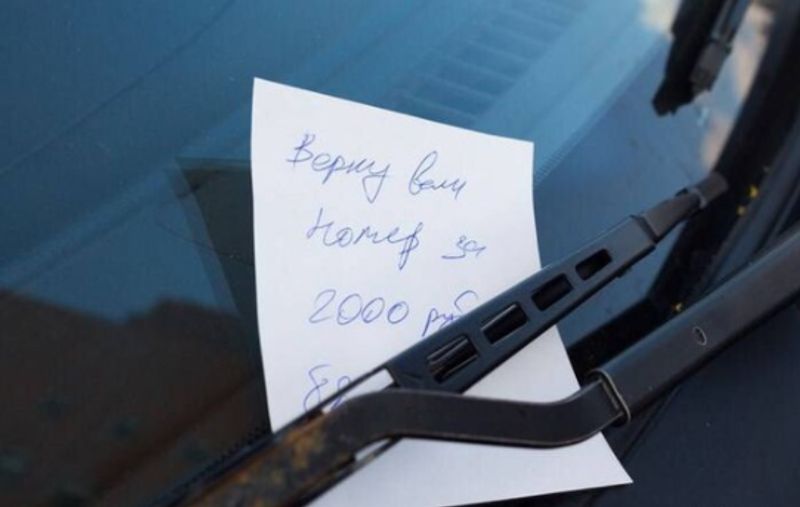 Верну вам
номер за
2000 руб